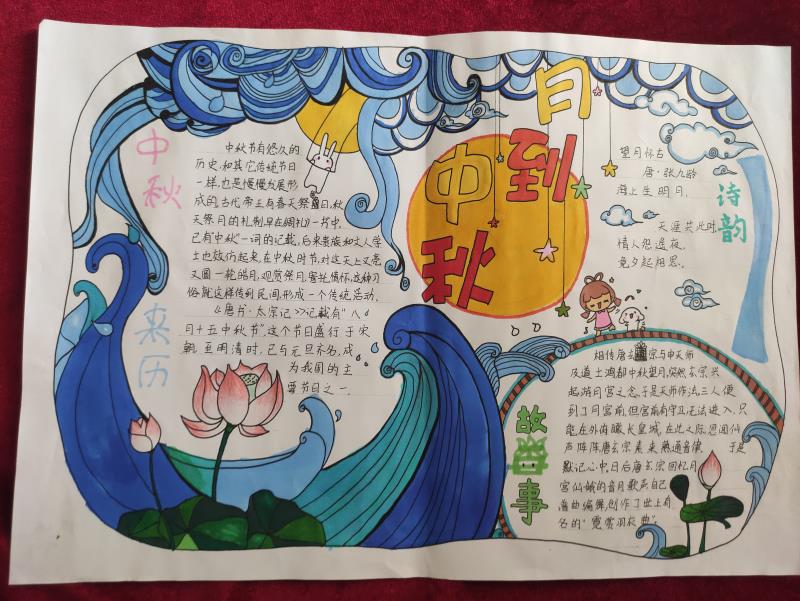 月到
中秋
中秋
来历
中秋节有悠久的
历史,和其它传统节日
一样,也是慢慢发展形
成的,古代帝王有春天祭日,秋
天祭月的礼制,早在《周礼》一书中,
已有“中秋”一词的记载,后来贵族和文人学
士也效仿起来,在中秋时节,对这天上又亮
又圆一轮皓月,观赏祭月,寄托情怀,这种习
俗就这样传到民间,形成一个传统活动,
《唐书·太宗记》记载有“八
月十五中秋节”,这个节日盛行于宋
朝至明清时,已与元旦齐名,成
为我国的主
要节日之一.
诗韵
望月怀古
唐·张九龄
海上生明月,
天涯共此时
情人怨遥夜,
竟夕起相思.
故事
相传唐玄宗与申天师
及道士鸿都中秋望月,突然玄宗兴
起游月宫之念,于是天师作法,三人便
到了月宫前,但宫前有守卫无法进入,只
能在外俯瞰长皇城,在此之际,忽闻仙
声阵阵唐玄宗素来熟通音律, 于是
默记心中,日后唐玄宗回忆月
宫仙娥的音月歌声自己
谱曲编舞,创作了世上有
名的“霓裳羽衣曲”